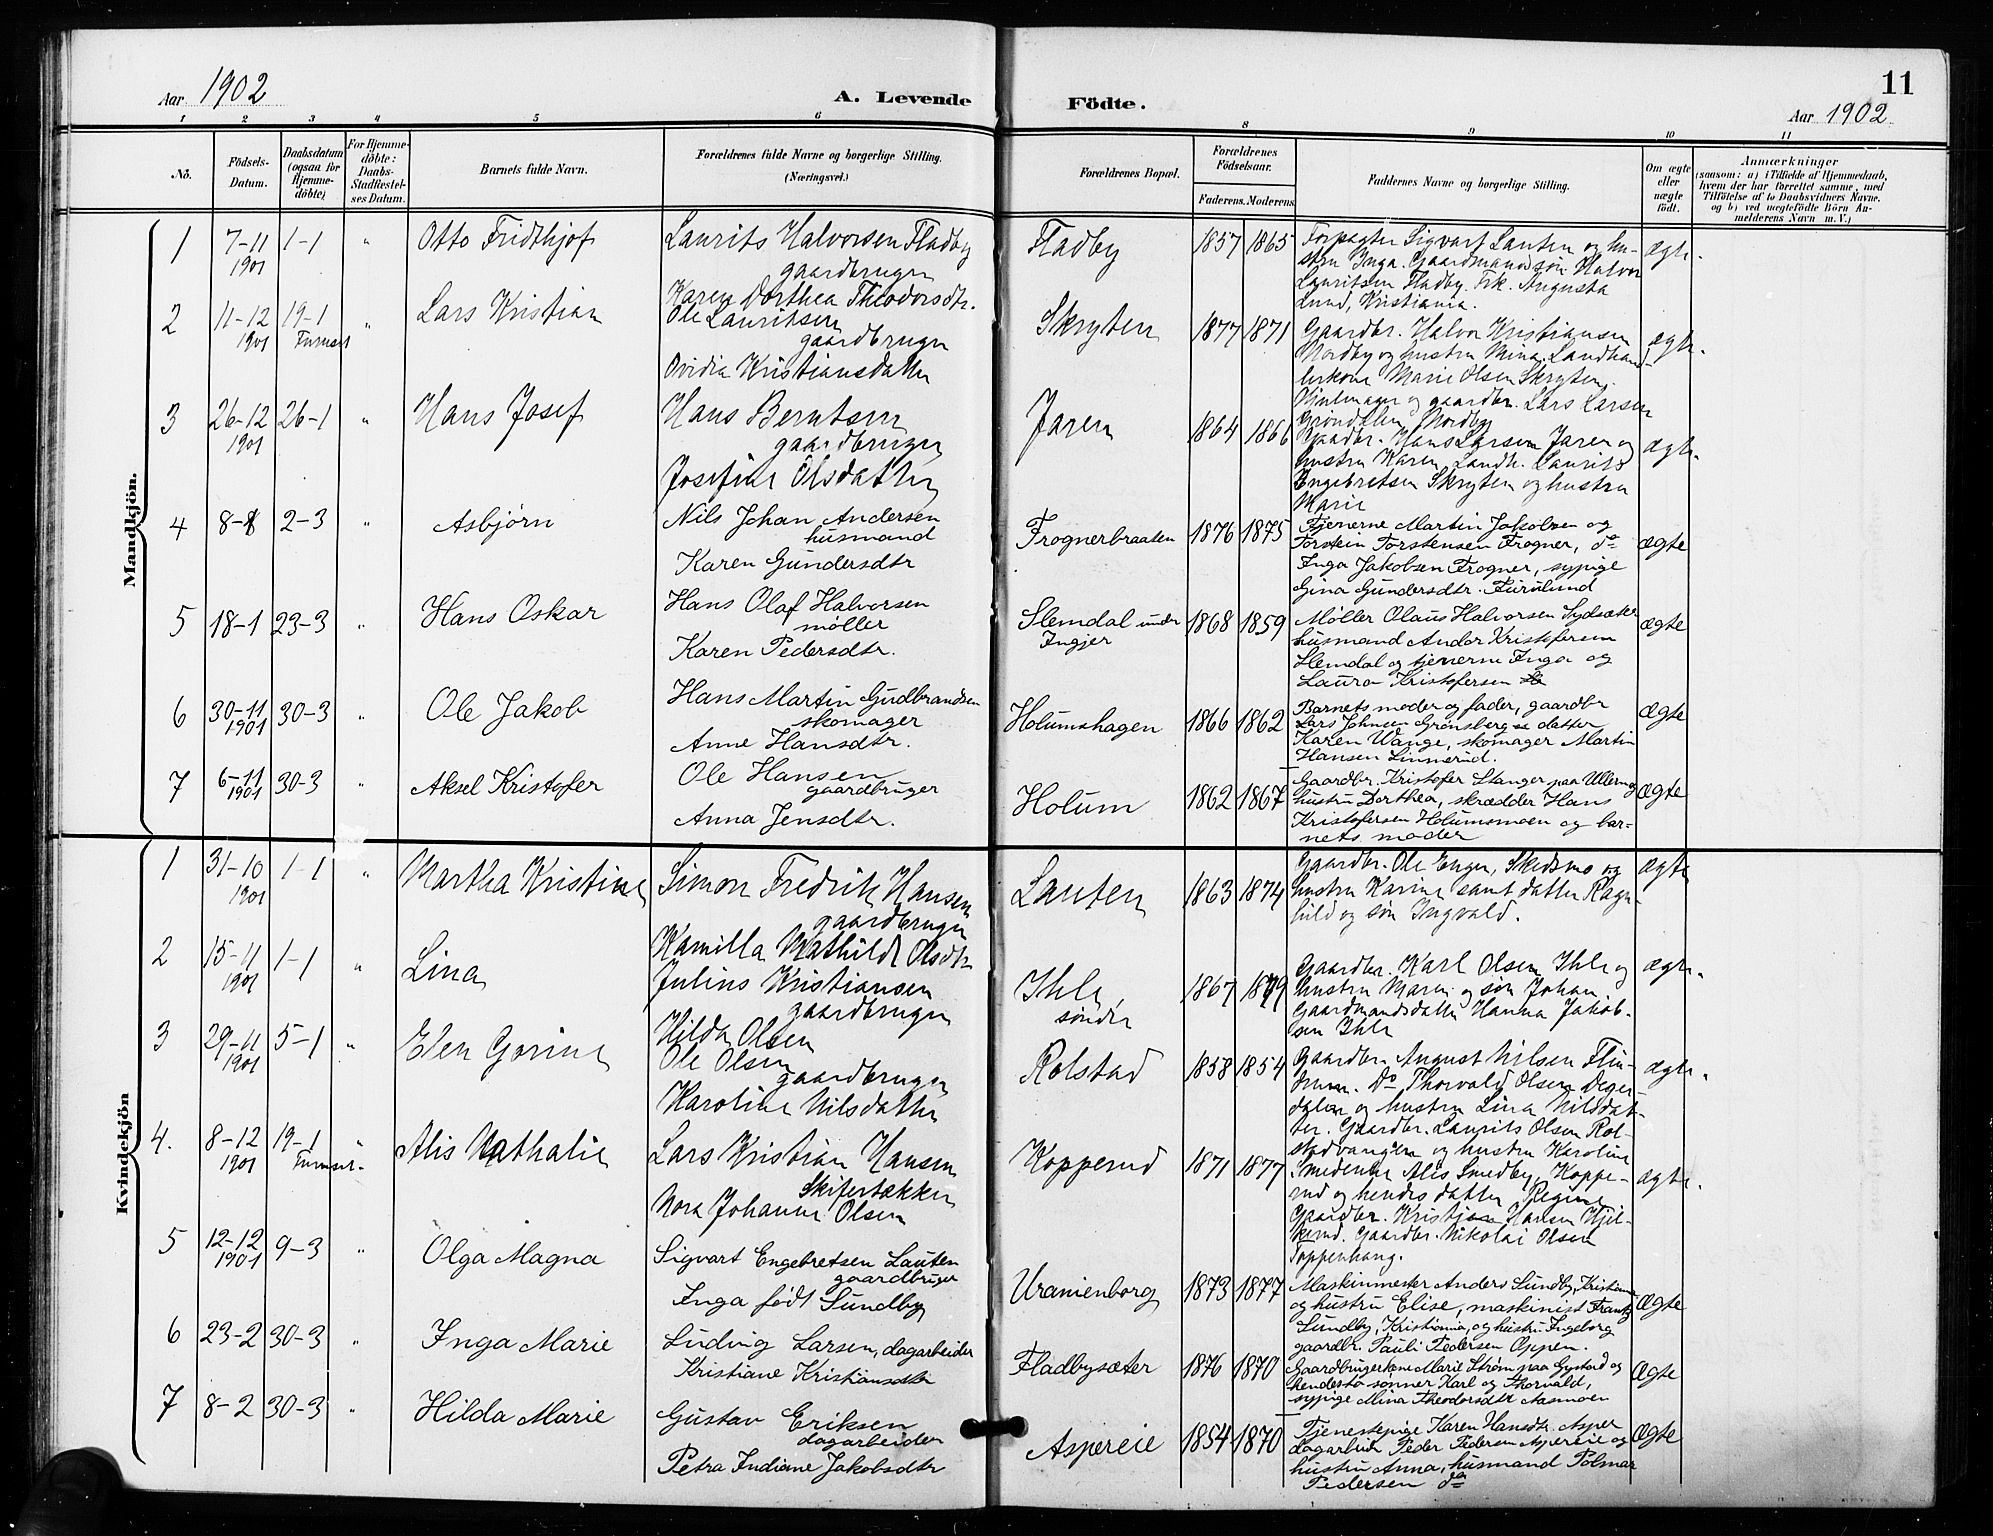 Aar 1902
A. Levende
Födte.
11
Aar 1902
1 2 3 4 5 6 8 9 10 11
No.
Födsels-Datum.
Daabsdatum (ogsaa for Hjemme-döbte)
For Hjemme-döbte: Daabs-Stadfæstel-ses Datum.
Barnets fulde Navn.
Forældrenes fulde Navne og borgerlige Stilling. (Næringsvei.)
Forældrenes Bopæl.
Forældrenes Födselsaar.
Faderens. Moderens.
Faddernes Navne og borgerlige Stilling.
Om ægte eller uægte födt.
Anmærkninger
(saasom: a) i Tilfælde af Hjemmedaab,
hvem der har forrettet samme, med
Tilföielse af to Daabsvidners Navne.
og b) ved uægtefödte Börn An-
melderens Navn m. V.)
Mandkjön.
1 7-11 1901 1-1 " Otto Fridthjof
Laurits Halvorsen Fladby
gaardbruger
Karen Dorthea Theodorsdtr.
Fladby 1857 1865
Forpagter Sigvart Lauten og hu-
stru Inga. Gaardmandssøn Halvor
Lauritsen Fladby. Frk. Augusta
Lund, Kristiania.
ægte.
2 11-12 1901 19-1 Furuset " Lars Kristian
Ole Lauritsen
gaardbruger
Ovidia Kristiansdatter
Skryten 1877 1871
Gaardbr. Halvor Kristiansen
Nordby og hustru Mina. Landhand-
lerkone Marie Olsen Skryten.
Hjulmager og gaardbr. Lars Larsen
Grøndalen, Nordby
ægte.
3 26-12 1901 26-1 " Hans Josef
Hans Berntsen
gaardbruger
Josefine Olsdatter
Jaren 1864 1866
Gaardbr. Hans Larsen Jaren og
hustru Karen. Landh. Laurits
Engebretsen Skryten og hustru
Marie
ægte.
4 8-1 2-3 " Asbjørn
Nils Johan Andersen
husmand
Karen Gundersdtr
Frognerbraaten 1876 1875
Tjenerne Martin Jakobsen og
Torstein Torstensen Frogner, do
Inga Jakobsen Frogner, sypige
Gina Gundersdtr. Furulund
ægte
5 18-1 23-3 " Hans Oskar
Hans Olaf Halvorsen
møller
Karen Pedersdtr.
Slemdal under
Ingjer
1868 1859
Møller Olaus Halvorsen Sydsæter
husmand Andor Kristofersen
Slemdal og tjenerne Inga og
Laura Kristofersen
ægte
6 30-11 1901 30-3 " Ole Jakob
Hans Martin Gudbrandsen
skomager
Anne Hansdtr.
Holumshagen 1866 1862
Barnets moder og fader, gaardbr
Lars Johnsen Grønsberg datter
Karen Wange, skomager Martin
Hansen Linnerud.
ægte
7 6-11 1901 30-3 " Aksel Kristofer
Ole Hansen
gaardbruger
Anna Jensdtr.
Holum 1862 1867
Gaardbr. Kristofer Stanger paa Ulleren og
hustru Dorthea, skrædder Hans
Kristofersen Holumsmoen og bar=
nets moder
ægte
Kvindekjön
1 31-10 1901 1-1 " Martha Kristine
Simon Fredrik Hansen
gaardbruger
Kamilla Mathilde Olsdtr
Lauten 1863 1874
Gaardbr. Ole Enger, Skedsmo og
hustru Karine samt datter Ragn-
hild og søn Ingvald.
ægte
2 15-11 1901 1-1 " Lina
Julius Kristiansen
gaardbruger
Hilda Olsen
Ihle,
søndre
1867 1879
Gaardbr. Karl Olsen Ihle og
hustru Maren og søn Johan.
Gaardmandsdatter Hanna Jakob-
sen Ihle
ægte.
3 29-11 1901 5-1 " Elen Gorine
Ole Olsen
gaardbruger
Karoline Nilsdatter
Rolstad 1858 1854
Gaardbr. August Nilsen Flin-
drum. Do Thorvald Olsen Deger-
dalen og hustru Lina Nilsdat-
ter. Gaardbr. Laurits Olsen Rol-
stadvangen og hustru Karoline
ægte.
4. 8-12 1901 19-1 Furuset. " Alis Nathalie
Lars Kristian Hansen
Skifertækker
Nora Johanne Olsen
Kopperud 1871 1877
Smedenke Alis Smedby, Koppe-
rud og hendes datter Regine
Gaardbr. Kristian Hansen Kjil-
Gaardbr. Nikolai Olsen
Toppenhaug.
ægte.
5 12-12 1901 9-3 " Olga Magna
Sigvart Engebretsen Lauten
gaardbruger
Inga født Sundby
Uranienborg 1873 1877
Maskinmester Anders Sundby, Kristiania
og hustru Elise, maskinist Frantz
Sundby, Kristiania, og hustru Ingeborg
gaardbr. Pauli Pedersen Oppen.
Ægte
6 23-2 30-3 " Inga Marie
Ludvig Larsen, dagarbeider
Kristiane Kristiansdtr
Fladbysæter 1876 1870
Gaardbrugerkone Marie Strøm paa Gystad og
hendes to sønner Karl og Thorvald,
sypige Mina Theodorsdtr Aasmoen
Ægte
7 8-2 30-3 " Hilda Marie
Gustav Eriksen
dagarbeider
Petra Indiane Jakobsdtr
Aspereie 1854 1870
Tjenestepige Karen Hansdtr Asper
dagarbeid. Peder Pedersen Aspereie og
hustru Anna, husmand Polmar
Pedersen do
Ægte